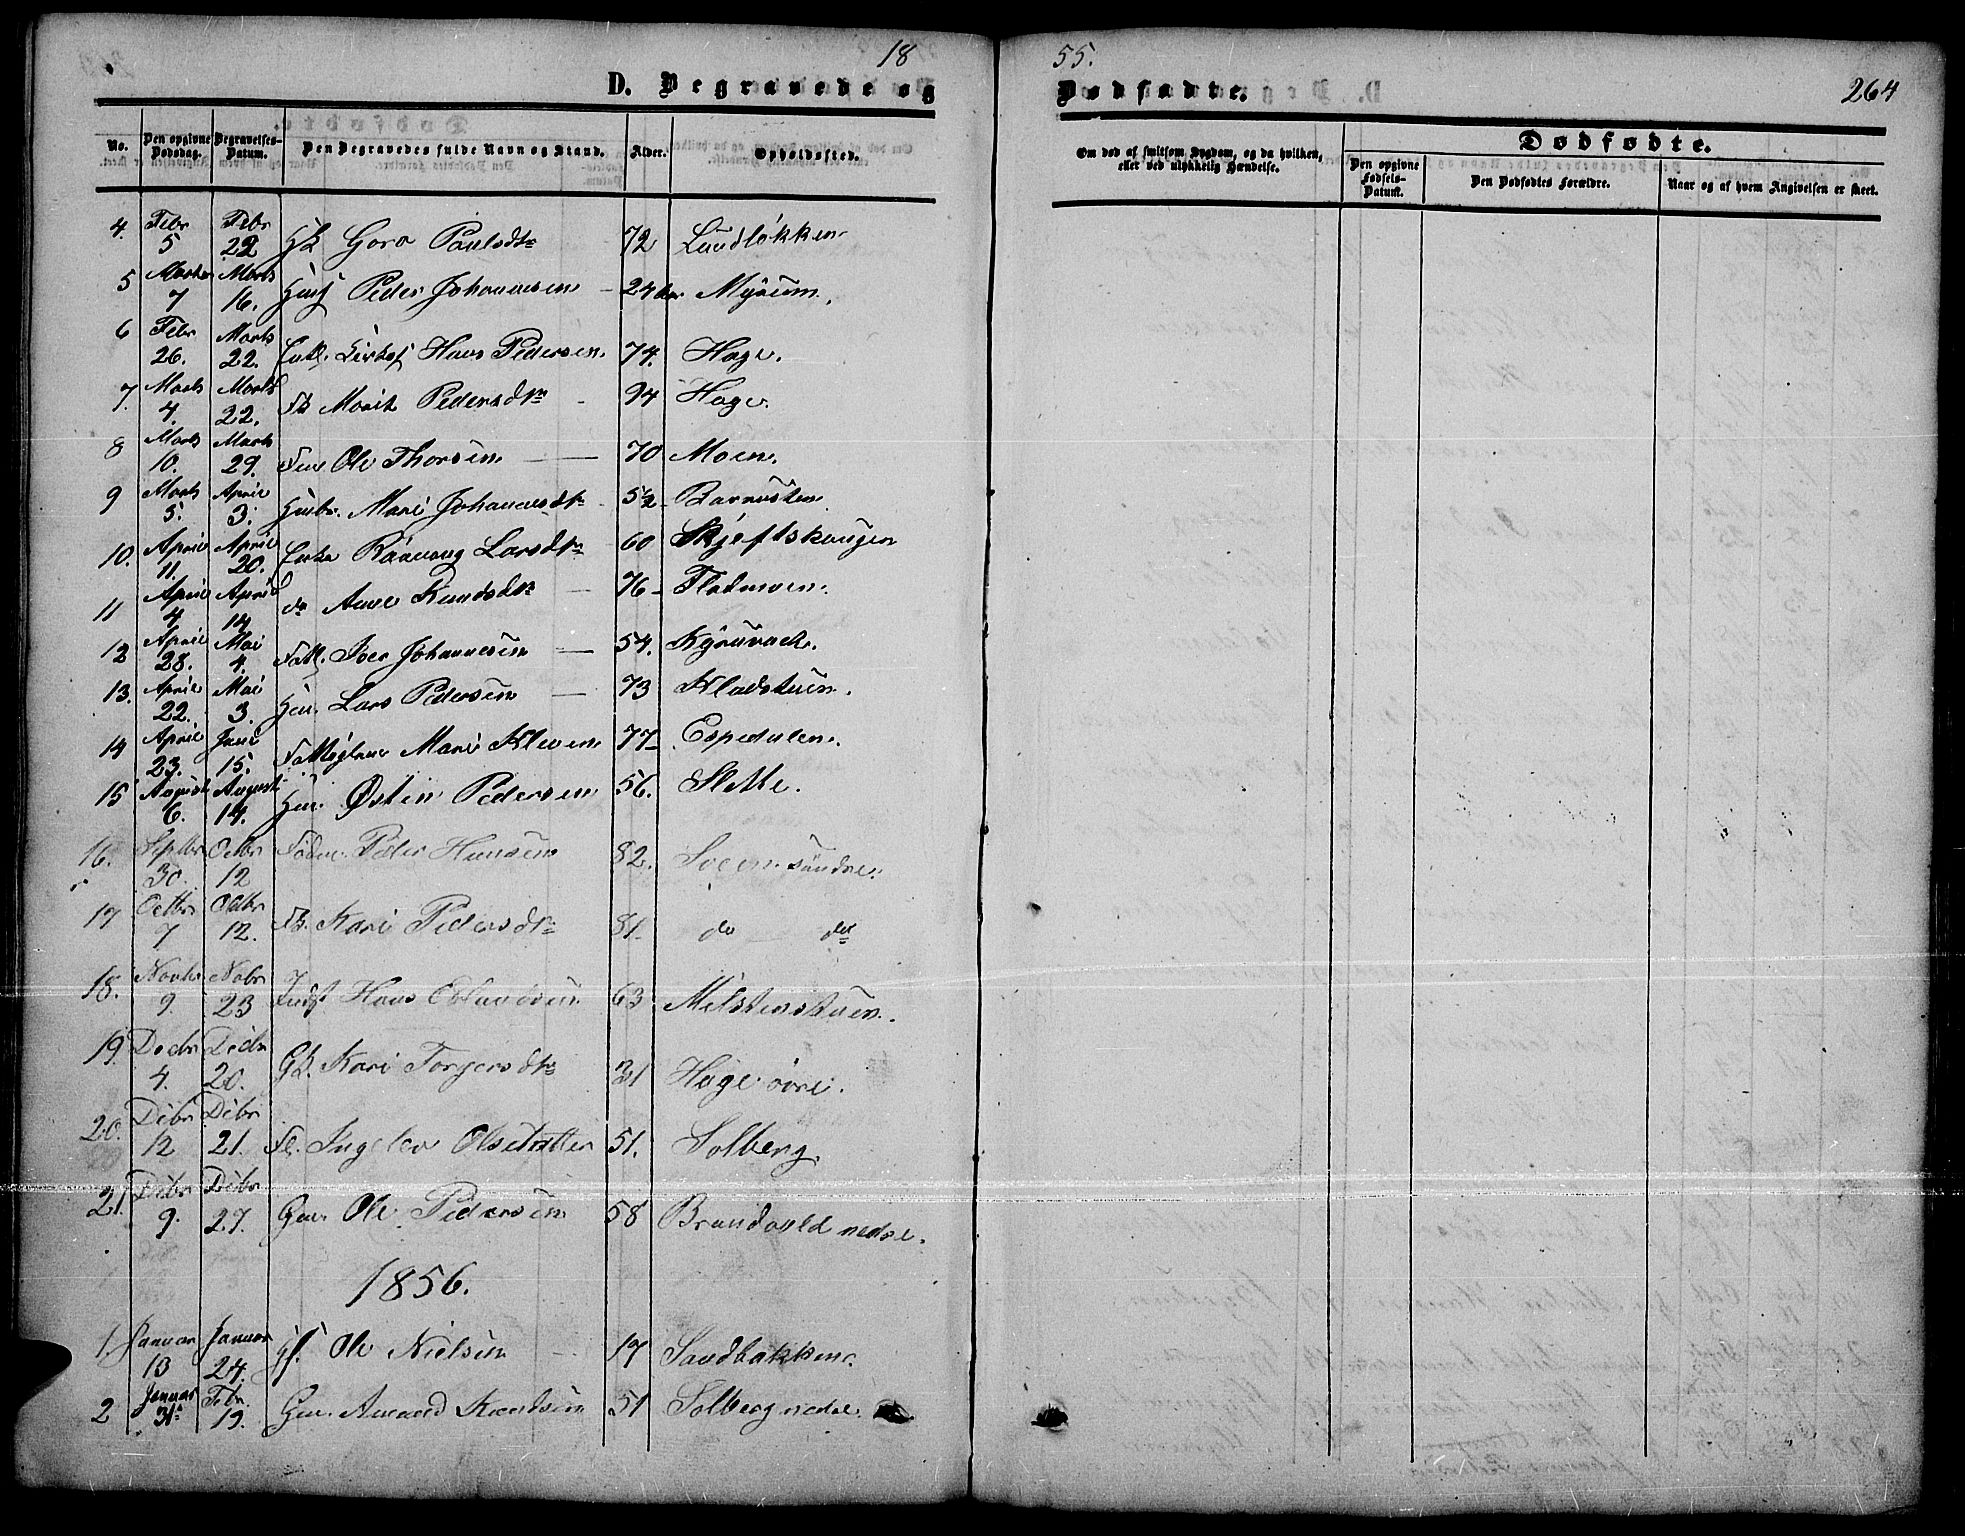 18 55.
264
D. Begravede og Dødfødte.
No. Den opgivne Dødsdag. Begravelses-Datum. Den Begravedes fulde Navn og Stand. Alder. Opholdssted.
Om død af smitsom Sygdom, og da hvilken, eller ved ulykkelig Hændelse.
Dødfødte.
Den opgivne Fødsels-Datum. Den Dødfødtes Forældre. Naar og af hvem Angivelsen er skeet.
4. Febr 5 Febr 22 Gk Goro Paulsdtr 72 Lundløkken
5 Marts 7 Marts 16. Peder Johannesen 24 Myrum.
6 Febr 26. Marts 22. Hans Pedersen 74. Hage.
7. Marts 4. Marts 22. Fk Marit Pedersdtr 94 Hage.
8 Marts 10. Marts 29. Ole Thorsen 70 Moen.
9 Marts 5. April 3. Mari Johannesdtr 52
10. April 11. April 20. Enke Rønnaug Larsdtr 60 Skjeftskaugen
11 April 4 April 14 do Anne Knudsdtr 76 Fladmoen.
12 April 28. Mai 4. Iver Johannesen 54.
13. April 22. Mai 3. Lars Pedersen 73 Kladstuen.
14 April 23. Juni 15. Mari Kleven 77 Espedalen.
15 August 6. August 14. Østen Pedersen 56. Slette.
16. Septbr 30. Octbr 12 Peder Hansen 82. Søndre.
17 Octbr 7 Octbr 12. Fk. Kari Pedersdtr 81. do do
18. Novbr 9. Nobr 23 Inds Hans Erlandsen 63 Milstenstuen.
19. Decbr 4. Decbr 20. Gk. Kari Torgersdtr 31 Hage øvre.
20. Decbr 12 Debr 21. Ingelev Olsdatter 51. Solberg.
21. Debr 9. Debr 27. Gm. Ole Pedersen 58 Brandvold nedre.
1856.
1. Januar 13 Januar 24. Ole Nielsen 17 Sandbakken.
2 Januar 31 Febr. 19. Gm. Amund Knudsen 51 Solberg nedre